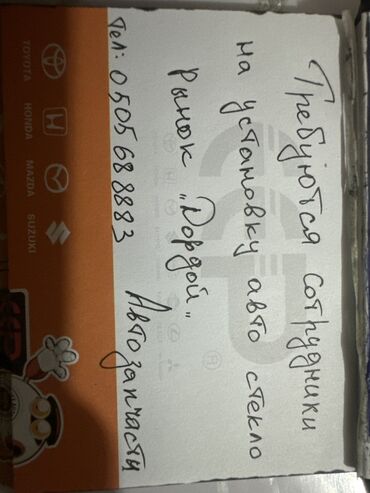 Требуются сотрудники
на установку авто стекло
рынок „Дордой"
Тел: 0505 68 88 83 Автозапчасти
TOYOTA HONDA MAZDA SUZUKI
CCP